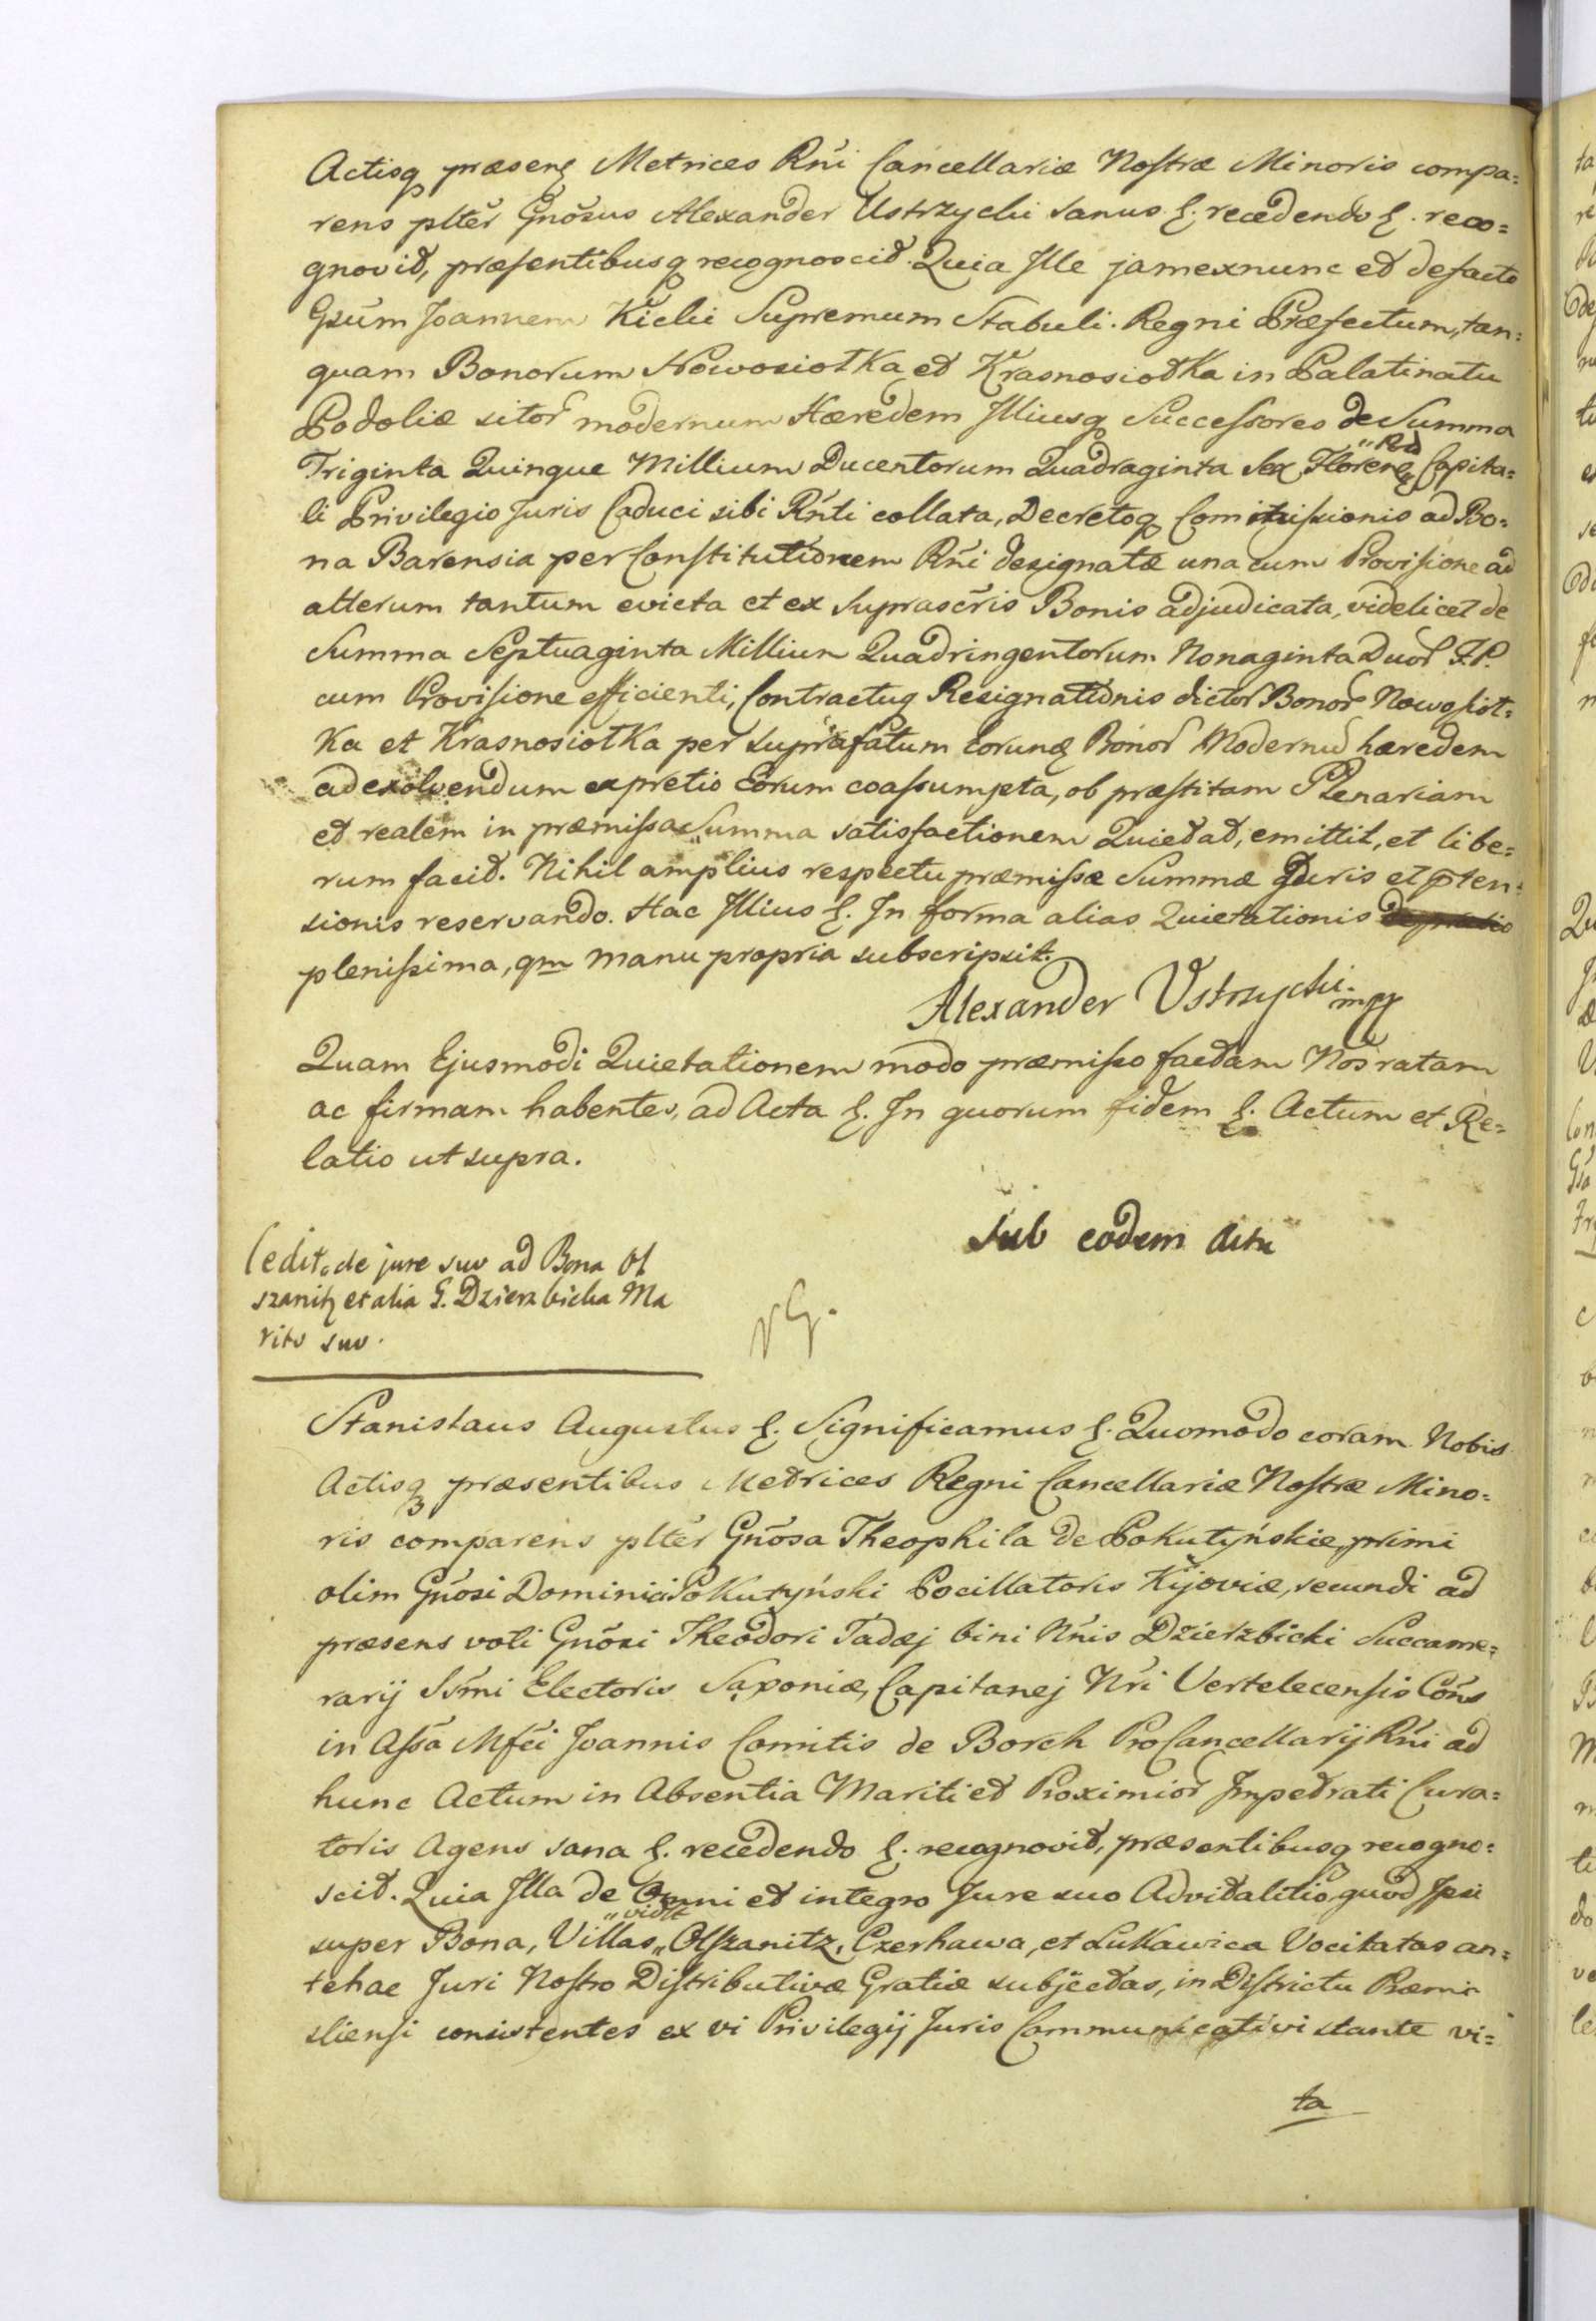 Actisq̃ præsenz Metrices Rñi Cancellariæ Nostræ Minoris compa=
rens plter Gnosus Alexander Ustrzycki sanus &. recedendo &. reco=
gnovit, præsentibusq̃ recognoscit. Quia Ille jamexnunc et defacto
Gsum Joannem Kicki Supremum Stabuli Regni Præfectum, tan=
quam Bonorum Nowosiołka et Krasnosiołka in Palatinatu
Podoliæ sitor modernum Hæredem Illiusq̃ Successores de Summa
Triginta Quinque Millium Ducentorum Quadraginta Sex Florenz Capita=
li Privilegio Juris Caduci sibi Rñti collata, Decretoq̃ Commissionis ad Bo=
na Barensia per Constitutionem Rñi designatæ una cum Provisione ad
alterum tantum evicta et ex suprascris Bonis adjudicata, videlicet de
Summa Septuaginta Millium Quadringentorum Nonaginta Duor F.P.
cum Provisione efficienti, Contractuq̃ Resignationis dictor Bonor Nowosioł=
ka et Krasnosiołka per suprafatum eorunz Bonor Modernu hæredem
ad exolvendum ex pretio Eorum coassumpta, ob præstitam Plenariam
et realem in præmissa Summa satisfactionem Quietat, emittit, et libe=
rum facit. Nihil amplius respectu præmissæ Summæ Juris et pten=
sionis reservando. Hac Illius &. In forma alias Quietationis
plenissima, qm manu propria subscripsit.
Alexander Ustrzycki mpp
Quam Ejusmodi Quietationem modo præmisso factam Nos ratam
ac firmam habentes, ad Acta &. In quorum fidem &. Actum et Re=
latio ut supra.
Sub eodem Actu
Cedit de jure suo ad Bona Ol
szanitz et alia G. Dzierzbicka Ma
rito suo.
Stanislaus Augustus &. Significamus &. Quomodo coram Nobis
Actisq̃ præsentibus Metrices Regni Cancellariæ Nostræ Mino=
ris comparens plter Gnosa Theophila de Pokutyńskie, primi
olim Gnosi Dominici Pokutyński Pocillatoris Kijoviæ, secundi ad
præsens voti Gnosi Theodori Tadæj bini Nñis Dzierzbicki Succame=
rarij Ssmi Electoris Saxoniæ, Capitanej Nri Vertelecensis Cons
in Assa Mfci Joannis Comitis de Borch ProCancellarij Rñi ad
hunc Actum in Absentia Mariti et Proximior Impetrati Cura=
toris Agens sana &. recedendo &. recognovit, præsentibusq̃ recogno=
scit. Quia Illa de Omni et integro Jure suo Advitalitio, quod Ipsi
super Bona, Villas "vidlt" Olszanitz, Czerhawa, et Łukawica Vocitatas an=
tehac Juri Nostro Distributivæ Gratiæ subjectas, in Districtu Præmi
sliensi consistentes ex vi Privilegij Juris Communicativi stante vi=
ta